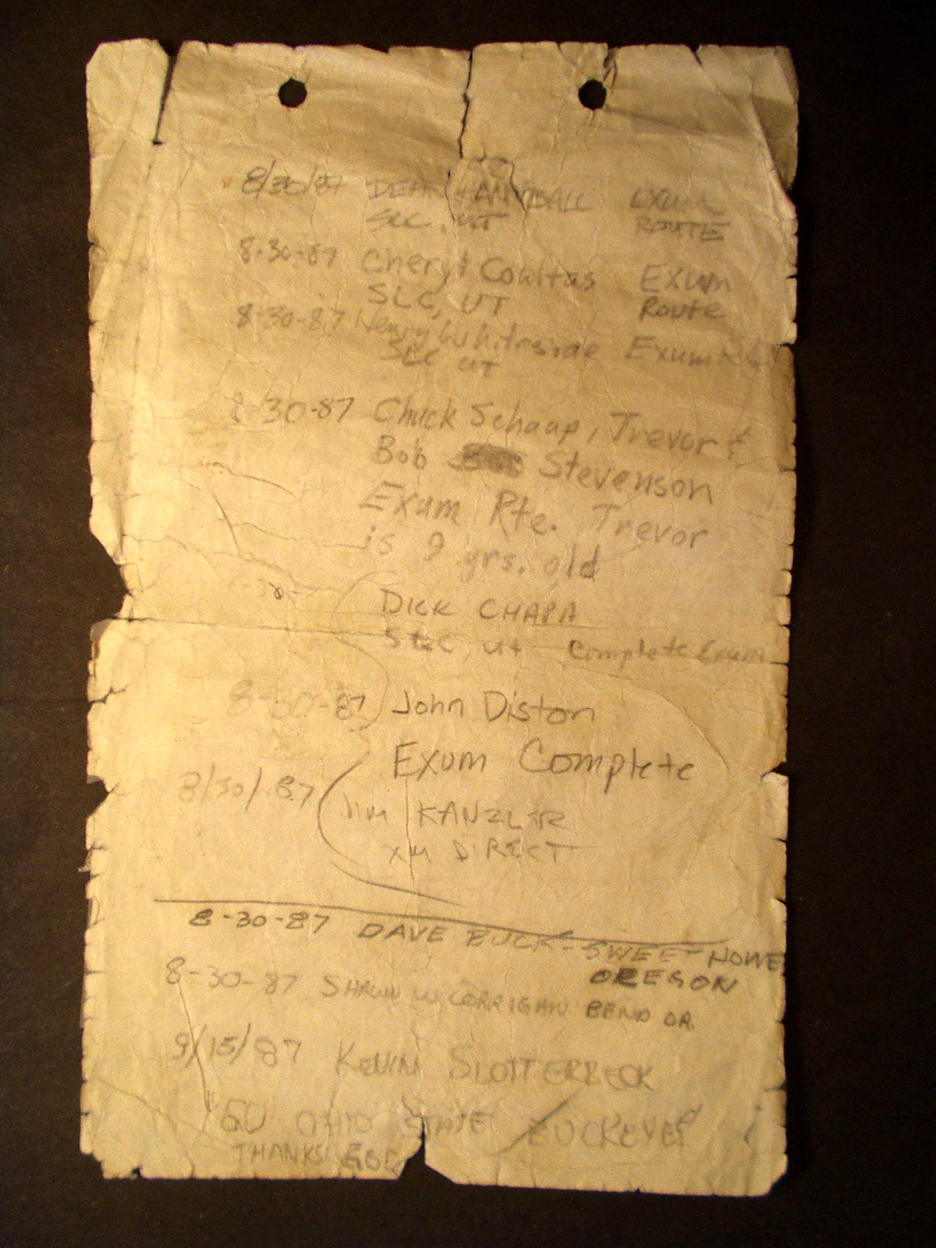 8/30/87 DEAN HANNIBALL EXUM
SLC, UT ROUTE
8-30-87 Cheryl Coultas EXUM
SLC, UT Route
8-30-87 Henry Whiteside Exum
SLC UT
8/30-87 Chuck Schaap, Trevor &
Bob Stevenson
Exum Rte. Trevor
is 9 yrs. old
DICK CHAPA
SLC, Ut Complete Exum
8-30-87 John Diston
Exum Complete
8/30/87 Jim KANZLER
XM DIRECT
8-30-87 DAVE BUCK-SWEET HOME
OREGON
8-30-87 SHAWN W CORRIGAN BEND OR.
9/15/87 KEVIN SLOTTERBECK
GO OHIO STATE BUCKEYES
THANKS GOD